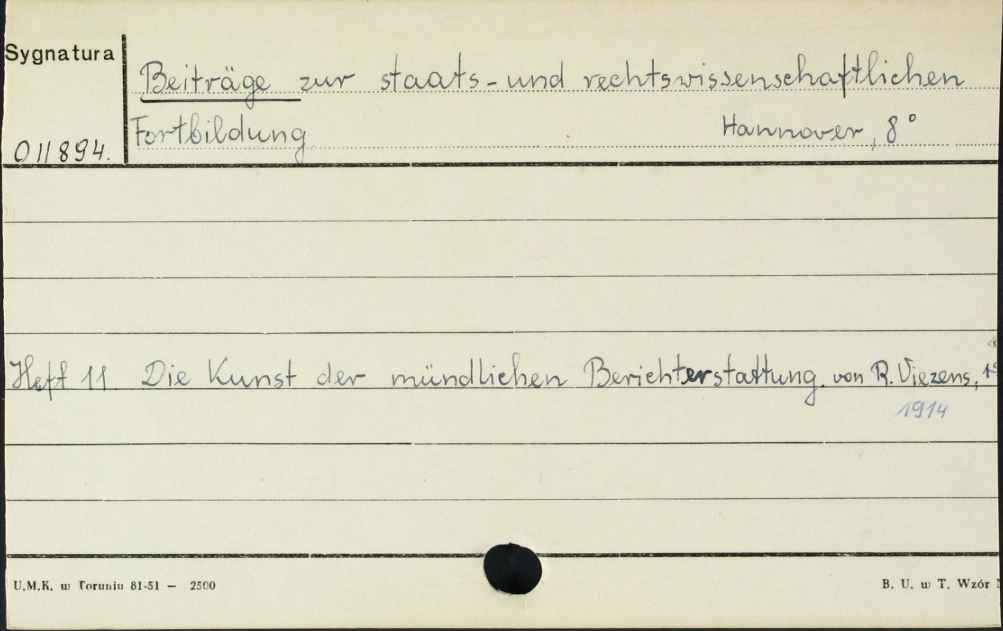 Sygnatura
Beiträge zur staats- und rechtswissenschaftlichen
011894. Fortbildung Hannover, 8°
Heft 11 Die Kunst der mündlichen Berichterstattung von R. Viezens,
1914
U.M.K. w Toruniu 81-51 — 2500 B. U. w T. Wzór